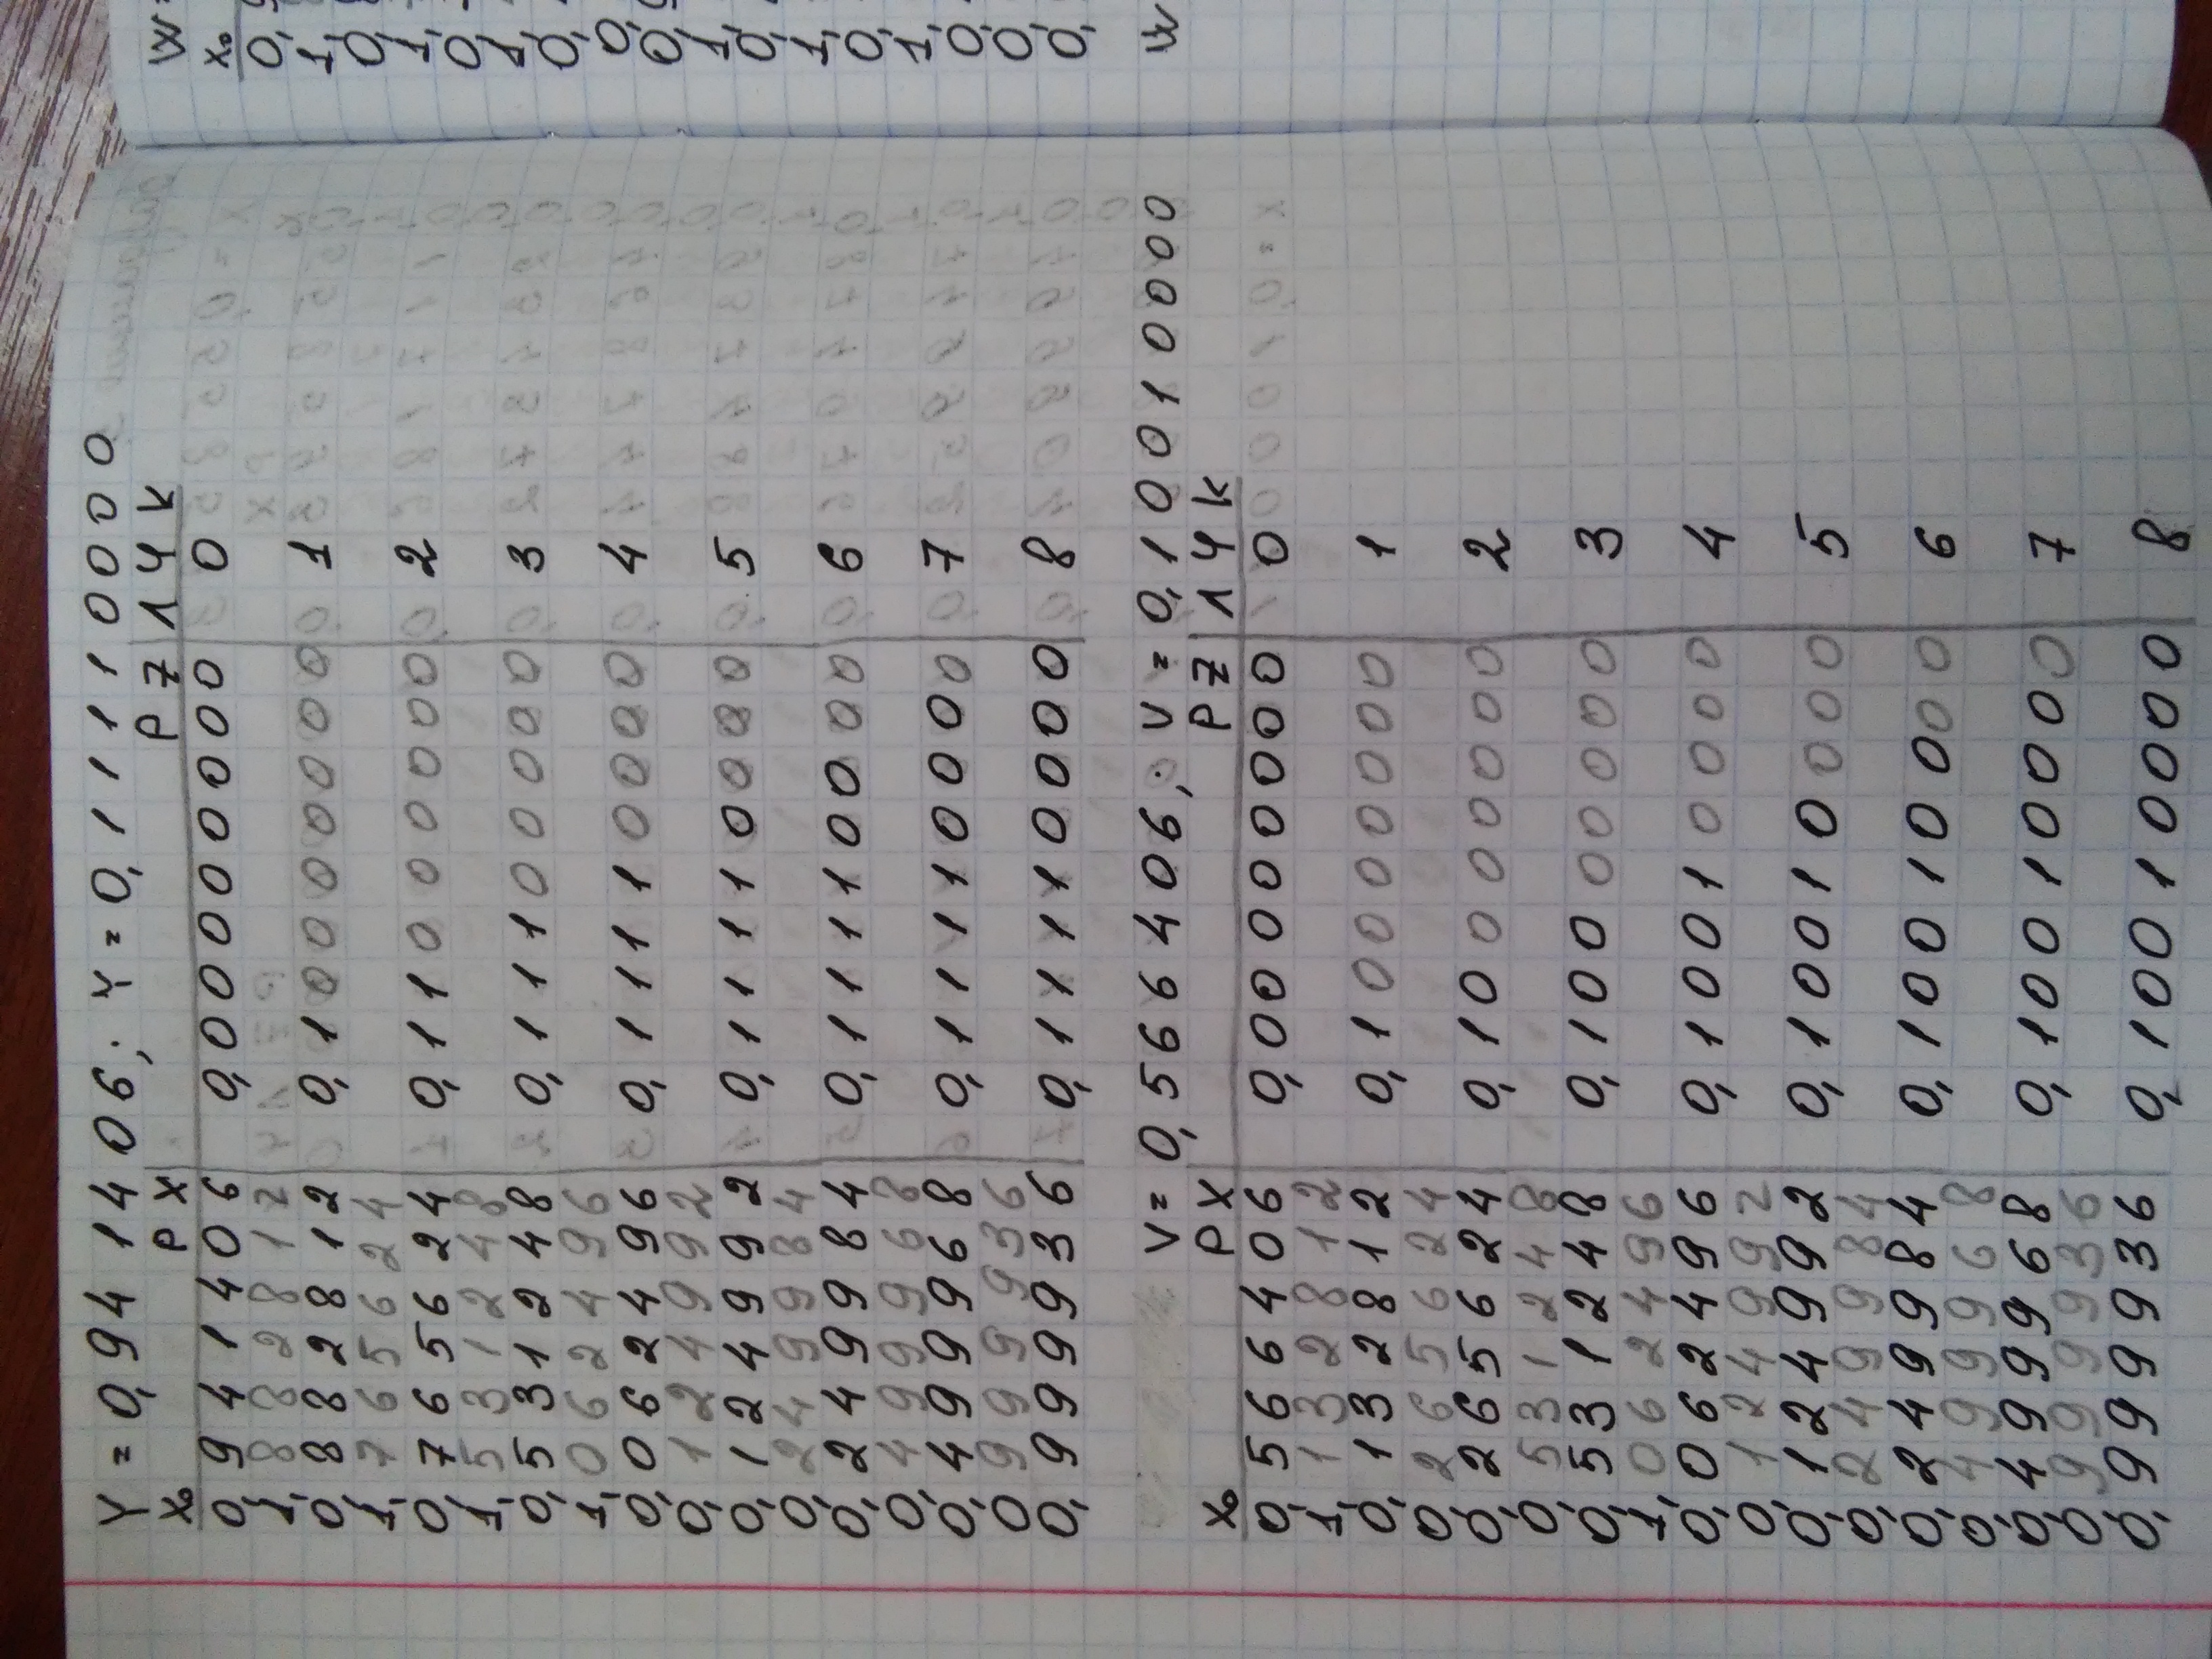 Y = 0,941406; Y = 0,11110000
X₀ РX РZ 1ЧК
0,941406 0,00000000 0
1,882812
0,882812 0,10000000 1
1,765624
0,765624 0,11000000 2
1,531248
0,531248 0,11100000 3
1,062496
0,062496 0,11110000 4
0,124992
0,124992 0,11110000 5
0,249984
0,249984 0,11110000 6
0,499968
0,499968 0,11110000 7
0 999936
0,999936 0,11110000 8
V = 0,566406; V = 0,10010000
X₀ РX РZ 1ЧК
0,566406 0,00000000 0
1,132812
0,132812 0,10000000 1
0,265624
0,265624 0,10000000 2
0,531248
0,531248 0,10000000 3
1,062496
0,062496 0,10010000 4
0,124992
0,124992 0,10010000 5
0,249984
0,249984 0,10010000 6
0,499968
0,499968 0,10010000 7
0,999936
0,999936 0,10010000 8
W
X₀
0,
1,
0,
1,
0,
1,
0,
0,
0,
1,
0,
1,
0,
1,
0,
0,
0,
W